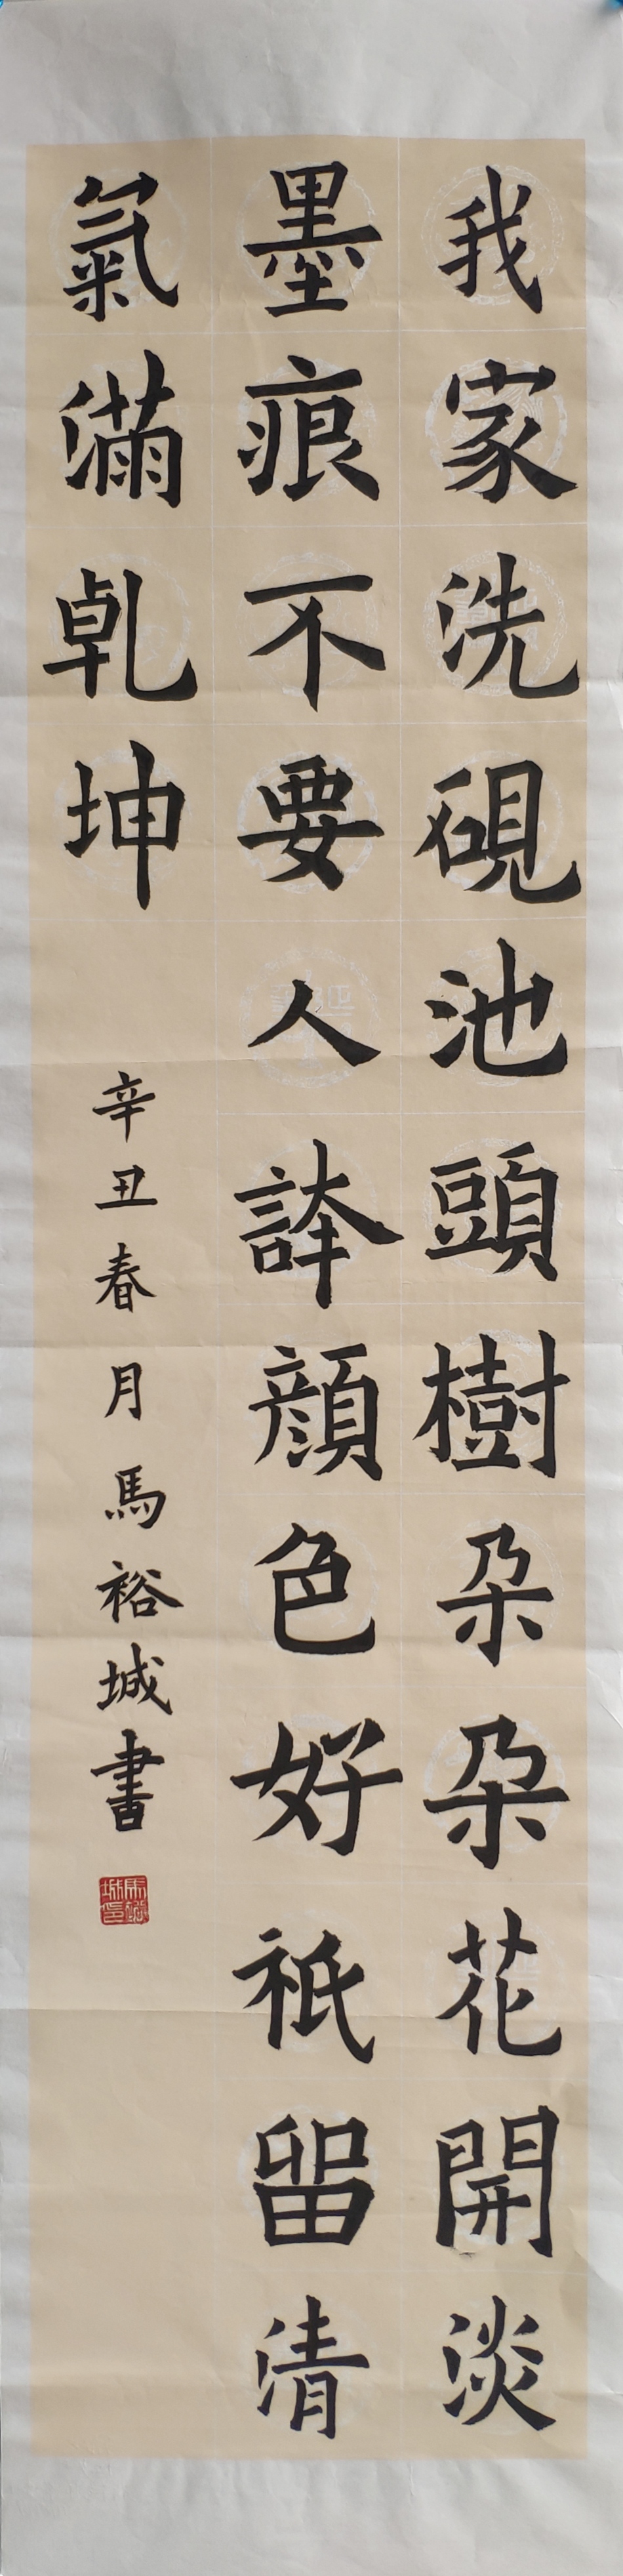 我家洗硯池頭樹朵朵花開淡
墨痕不要人誇顏色好祇留清
氣滿乾坤
辛丑春月馬裕城書
馬裕城印